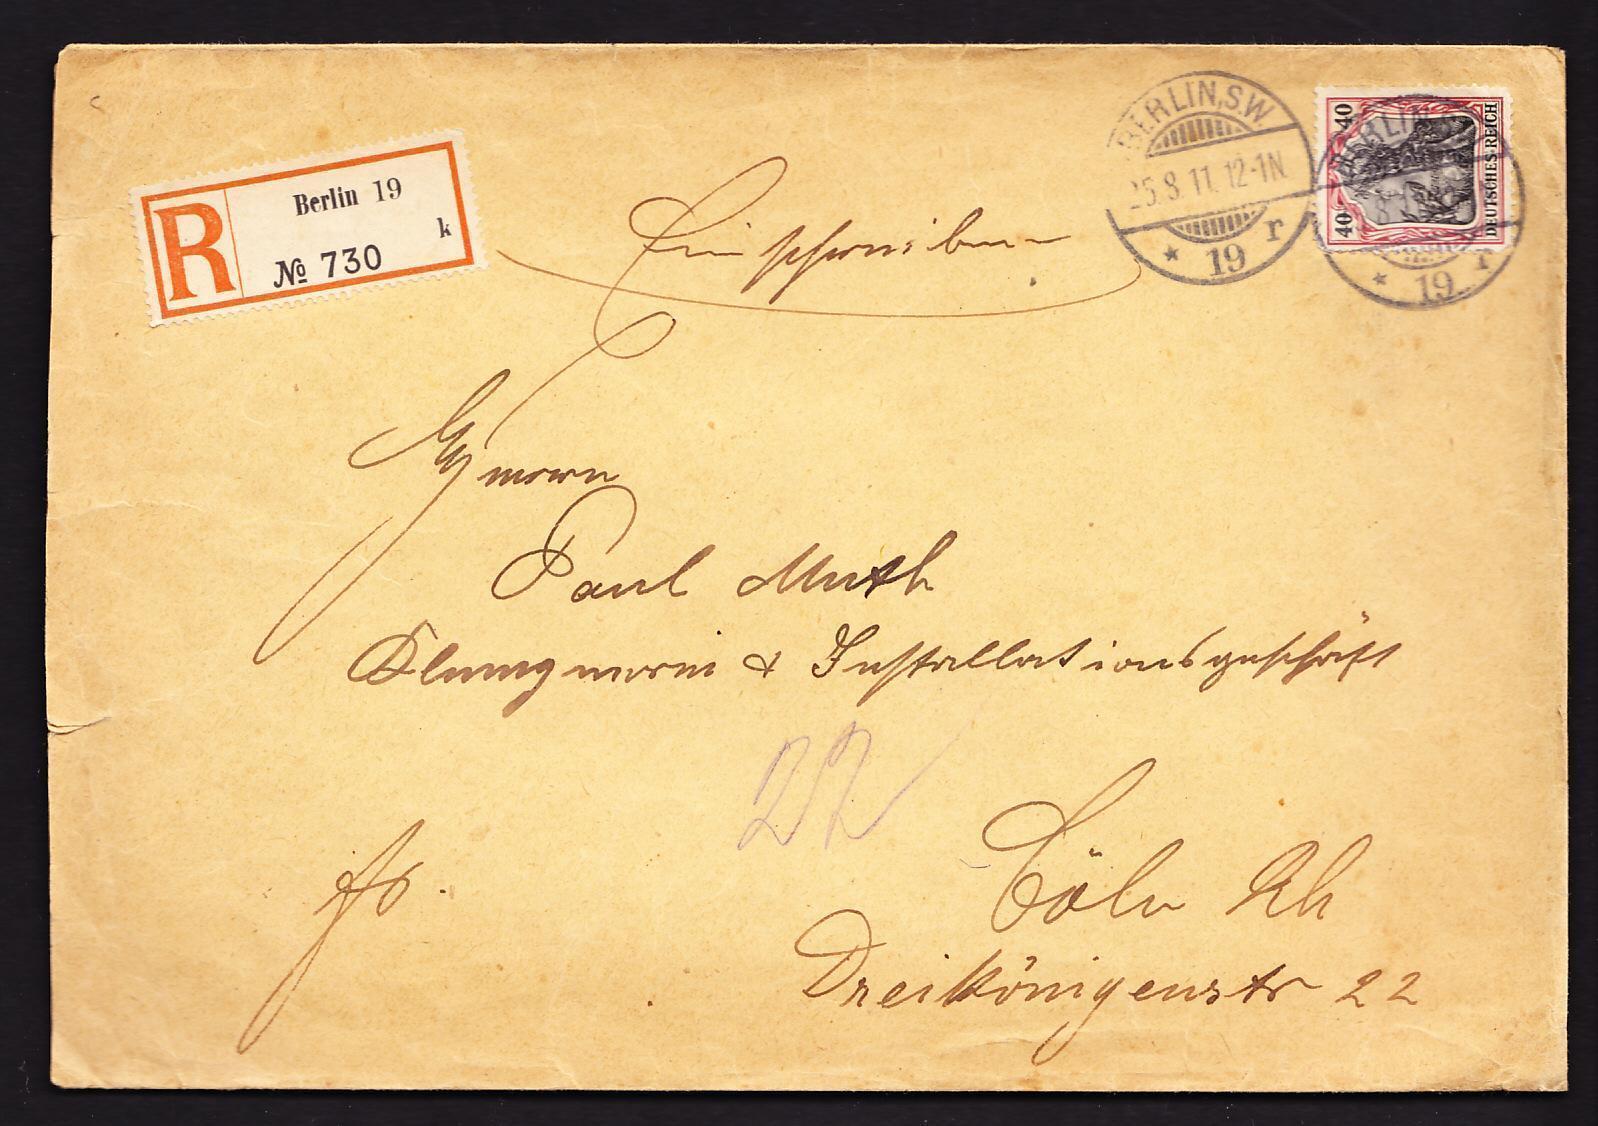 R
Berlin 19
k
№ 730
Einschreiben
BERLIN, S.W.
25.8.11. 12-1N.
* 19 r
40 40
DEUTSCHES REICH
BERLIN
* 19 r
Paul Muth
Klempnerei & Installationsgeschäft
22
fr.
Cöln Rh
Dreikönigenstr 22